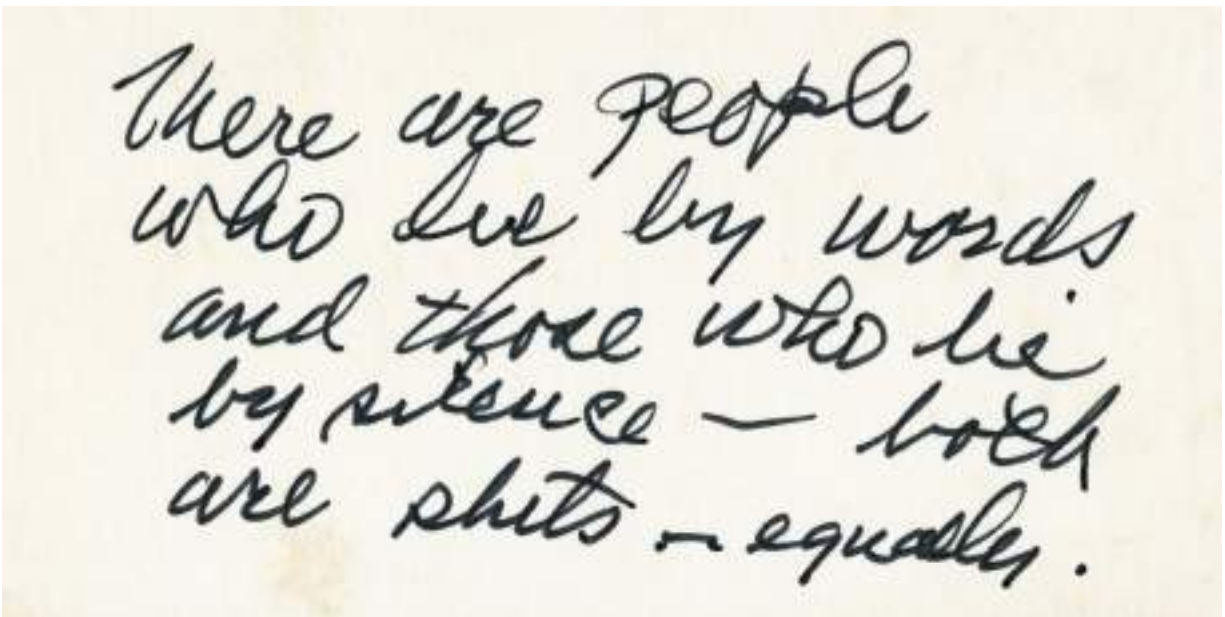 There are people
who live by words
and those who lie
by silence — both
are shits — equally.